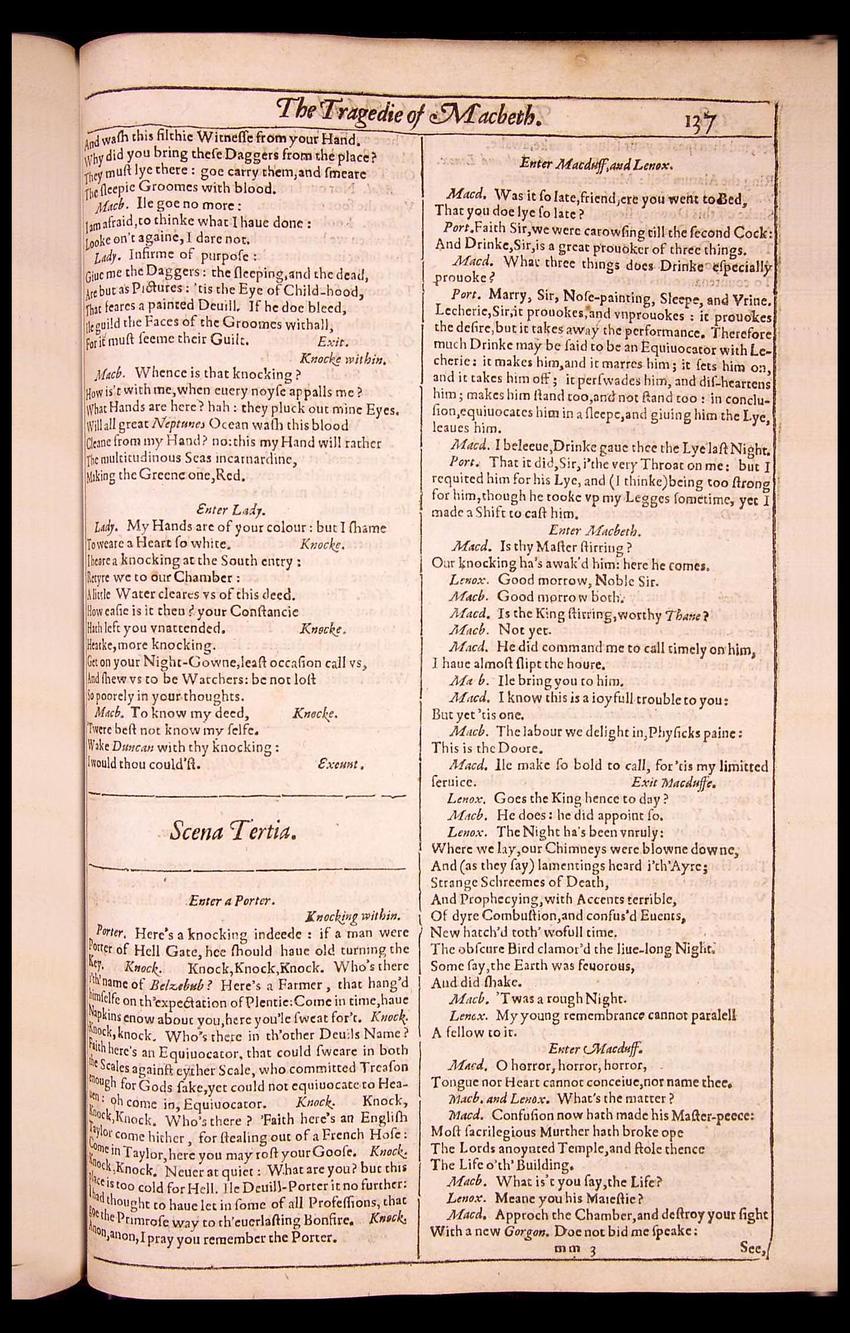 The Tragedie of Macbeth. 137
And waſh this filthie Witneſſe from your Hand.
Why did you bring theſe Daggers from the place?
They muſt lye there: goe carry them, and ſmeare
The ſleepie Groomes with blood.
Macb. Ile goe no more:
I am afraid, to thinke what I haue done:
Looke on't againe, I dare not.
Lady. Infirme of purpoſe:
Giue me the Daggers: the ſleeping, and the dead,
Are but as Pictures: 'tis the Eye of Child-hood,
That feares a painted Deuill. If he doe bleed,
Ile guild the Faces of the Groomes withall,
For it muſt ſeeme their Guilt. Exit.
Knocke within.
Macb. Whence is that knocking?
How is't with me, when euery noyſe appalls me?
What Hands are here? hah: they pluck out mine Eyes.
Will all great Neptunes Ocean waſh this blood
Cleane from my Hand? no: this my Hand will rather
The multitudinous Seas incarnardine,
Making the Greene one, Red.
Enter Lady.
Lady. My Hands are of your colour: but I ſhame
To weare a Heart ſo white. Knocke.
I heare a knocking at the South entry:
Retyre we to our Chamber:
A little Water cleares vs of this deed.
How eaſie is it then? your Conſtancie
Hath left you vnattended. Knocke.
Hearke, more knocking.
Get on your Night-Gowne, leaſt occaſion call vs,
And ſhew vs to be Watchers: be not loſt
So poorely in your thoughts.
Macb. To know my deed, Knocke.
'Twere beſt not know my ſelfe.
Wake Duncan with thy knocking:
I would thou could'ſt. Exeunt.
Scena Tertia.
Enter a Porter.
Knocking within.
Porter. Here's a knocking indeede: if a man were
Porter of Hell Gate, hee ſhould haue old turning the
Key. Knock. Knock, Knock, Knock. Who's there
i'th' name of Belzebub? Here's a Farmer, that hang'd
himſelfe on th'expectation of Plentie: Come in time, haue
Napkins enow about you, here you'le ſweat for't. Knock.
Knock, knock. Who's there in th'other Deuils Name?
Faith here's an Equiuocator, that could ſweare in both
the Scales againſt eyther Scale, who committed Treaſon
enough for Gods ſake, yet could not equiuocate to Hea-
uen: oh come in, Equiuocator. Knock. Knock,
Knock, Knock. Who's there? 'Faith here's an Engliſh
Taylor come hither, for ſtealing out of a French Hoſe:
Come in Taylor, here you may roſt your Gooſe. Knock.
Knock, Knock. Neuer at quiet: What are you? but this
place is too cold for Hell. Ile Deuill-Porter it no further:
I had thought to haue let in ſome of all Profeſſions, that
goe the Primroſe way to th'euerlaſting Bonfire. Knock.
Anon, anon, I pray you remember the Porter.
Enter Macduff, and Lenox.
Macd. Was it ſo late, friend, ere you went to Bed,
That you doe lye ſo late?
Port. Faith Sir, we were carowſing till the ſecond Cock:
And Drinke, Sir, is a great prouoker of three things.
Macd. What three things does Drinke eſpecially
prouoke?
Port. Marry, Sir, Noſe-painting, Sleepe, and Vrine.
Lecherie, Sir, it prouokes, and vnprouokes: it prouokes
the deſire, but it takes away the performance. Therefore
much Drinke may be ſaid to be an Equiuocator with Le-
cherie: it makes him, and it marres him; it ſets him on,
and it takes him off; it perſwades him, and diſ-heartens
him; makes him ſtand too, and not ſtand too: in conclu-
ſion, equiuocates him in a ſleepe, and giuing him the Lye,
leaues him.
Macd. I beleeue, Drinke gaue thee the Lye laſt Night.
Port. That it did, Sir, i'the very Throat on me: but I
requited him for his Lye, and (I thinke) being too ſtrong
for him, though he tooke vp my Legges ſometime, yet I
made a Shift to caſt him.
Enter Macbeth.
Macd. Is thy Maſter ſtirring?
Our knocking ha's awak'd him: here he comes.
Lenox. Good morrow, Noble Sir.
Macb. Good morrow both.
Macd. Is the King ſtirring, worthy Thane?
Macb. Not yet.
Macd. He did command me to call timely on him,
I haue almoſt ſlipt the houre.
Ma b. Ile bring you to him.
Macd. I know this is a ioyfull trouble to you:
But yet 'tis one.
Macb. The labour we delight in, Phyſicks paine:
This is the Doore.
Macd. Ile make ſo bold to call, for 'tis my limitted
ſeruice. Exit Macduffe.
Lenox. Goes the King hence to day?
Macb. He does: he did appoint ſo.
Lenox. The Night ha's been vnruly:
Where we lay, our Chimneys were blowne downe,
And (as they ſay) lamentings heard i'th'Ayre;
Strange Schreemes of Death,
And Prophecying, with Accents terrible,
Of dyre Combuſtion, and confus'd Euents,
New hatch'd toth' wofull time.
The obſcure Bird clamor'd the liue-long Night.
Some ſay, the Earth was feuorous,
And did ſhake.
Macb. 'Twas a rough Night.
Lenox. My young remembrance cannot paralell
A fellow to it.
Enter Macduff.
Macd. O horror, horror, horror,
Tongue nor Heart cannot conceiue, nor name thee.
Macb. and Lenox. What's the matter?
Macd. Confuſion now hath made his Maſter-peece:
Moſt ſacrilegious Murther hath broke ope
The Lords anoynted Temple, and ſtole thence
The Life o'th' Building.
Macb. What is't you ſay, the Life?
Lenox. Meane you his Maieſtie?
Macd. Approch the Chamber, and deſtroy your ſight
With a new Gorgon. Doe not bid me ſpeake:
mm 3 See,